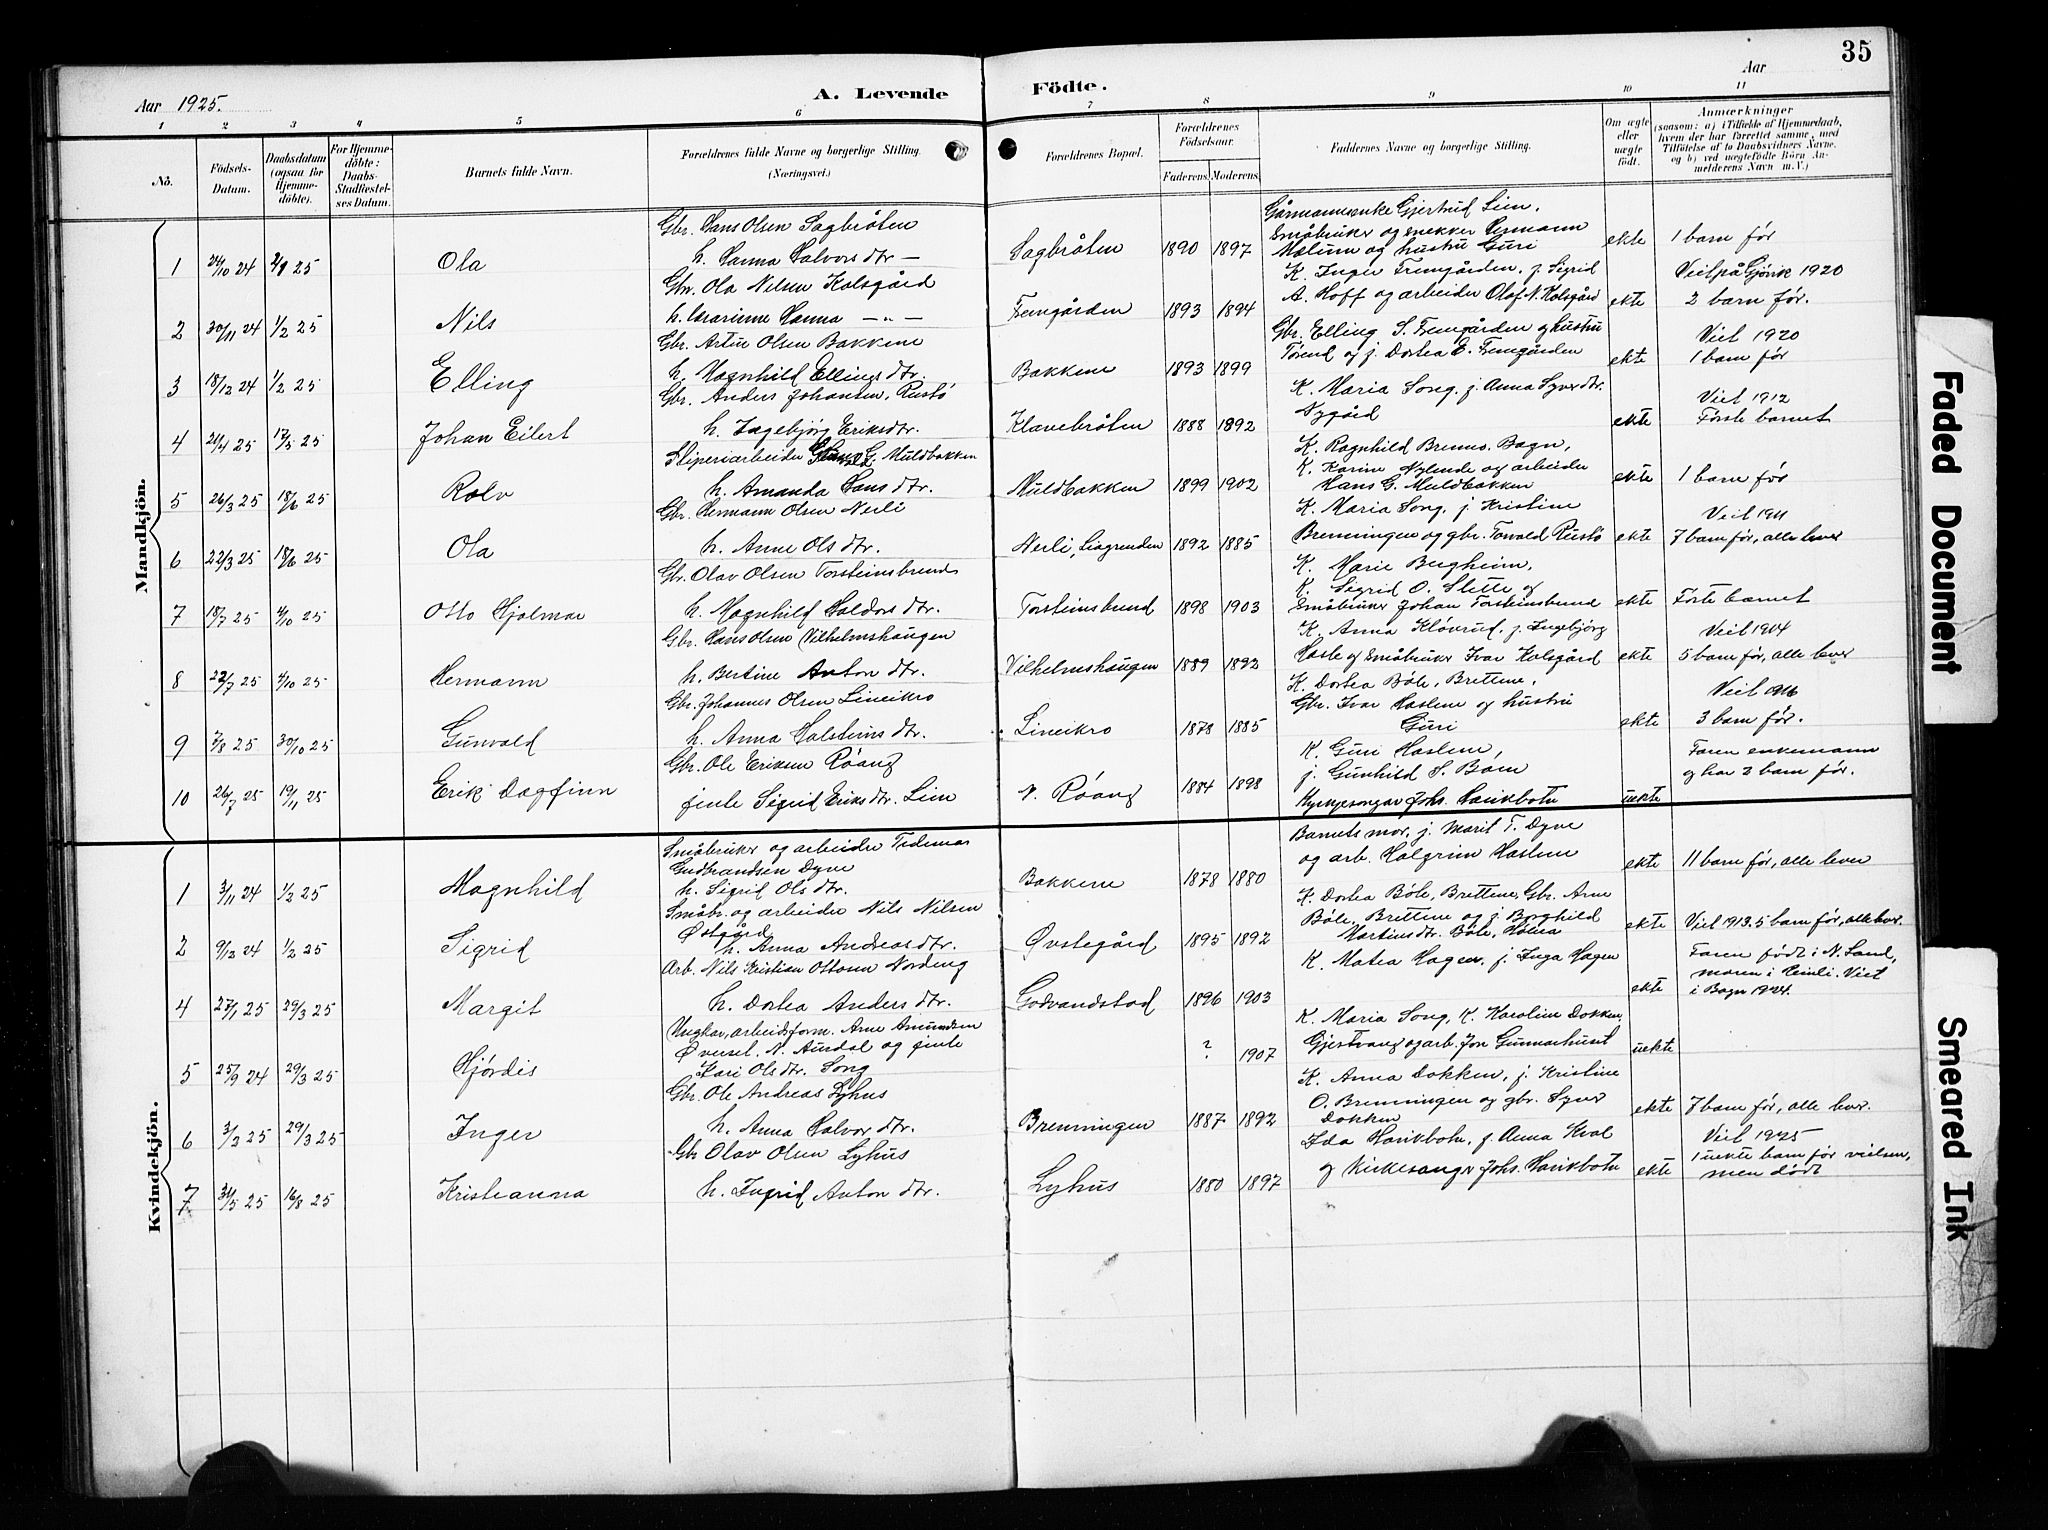 35
Aar 1925.
A. Levende Födte.
Aar
1 2 3 4 5 6 7 8 9 10 11
No.
Födsels-Datum.
Daabsdatum (ogsaa for Hjemme-döbte).
For Hjemme-döbte: Daabs-Stadfæstel-ses Datum.
Barnets fulde Navn.
Forældrenes fulde Navne og borgerlige Stilling.
(Næringsvei.)
Forældrenes Bopæl.
Forældrenes Födselsaar.
Faderens. Moderens.
Faddernes Navne og borgerlige Stilling.
Om ægte eller uægte födt.
Anmærkninger
(saasom: a) i Tilfælde af Hjemmedaab, hvem der har forrettet samme, med Tilföielse af to Daabsvidners Navne. og b) ved uægtefödte Börn An-melderens Navn m. V.)
Mandkjön.
1 24/10 24 2/1 25 Ola
Gbr. Hans Olsen Sagbråten
h. Hanna Halvors dtr. —
Sagbråten 1890 1897
Gårmannsenke Gjertrud Lien,
Småbruker og snekker Hermann
Mælum og hustru Guri
ekte 1 barn før
Veit på Gjøvik 1920
2 30/11 24 1/2 25 Nils
Gbr. Ola Nilsen Kolsgård
h. Hanna — " —
Fremgården 1893 1894
K. Inger Fremgården, j. Sigrid
A. Hoff og arbeider Olaf N. Kolsgård
ekte 2 barn før.
Veit 1920
3 18/12 24 1/2 25 Elling
Gbr. Artur Olsen Bakkene
h. Magnhild Ellings dtr.
Bakkene 1893 1899
Gbr. Elling S. Fremgården og hustru
Tørend og j. Dortea E. Fremgården
ekte 1 barn før
Veit 1912
4 21/4 25 17/5 25 Johan Eilert
Gbr. Anders Johansen, Rustø
h. Ingebjørg Eriksdtr.
Klavebråten 1888 1892
K. Maria Song, j. Anna Syversdtr.
Nygård
ekte Første barnet
5 26/3 25 18/6 25 Rolv
Sliperiarbeider G. Muldbakken
h. Amanda Hans dtr.
Muldbakken 1899 1902
K. Ragnhild Brenno. Bagn,
K. Karine Nylende og arbeider
Hans G. Muldbakken
ekte 1 barn før
Veit 1911
6 22/3 25 18/6 25 Ola
Gbr. Hermann Olsen Nerli
h. Anne Ols dtr.
Nerli, Liagrenden 1892 1885
K. Maria Song, j. Kristine
Brenningen og gbr. Torvald Rustø
ekte 7 barn før, alle lever
7 18/7 25 4/10 25 Otto Hjalmar
Gbr. Olav Olsen Torsteinsbrend
h. Magnhild Haldors dtr.
Torsteinsbrund 1898 1903
K. Marie Bergheim,
K. Sigrid O. Slette og
Småbruker Johan Torsteinsbrund
ekte Første barnet
Veit 1904
8 22/7 25 4/10 25 Hermann
Gbr. Hans Olsen Vilhelmshaugen
h. Bertine Anton dtr.
Vilhelmshaugen 1889 1892
K. Anna Kløvrud, j. Ingebjørg
Hasle og Småbruker Ivar Kolsgård
ekte 5 barn før, alle lever
Veit 1916
9 7/8 25 30/10 25 Gunvald
Gbr. Johannes Olsen Lineikro
h. Anna Halsteins dtr.
Lineikro 1878 1885
K. Dortea Bøle, Brettine,
Gbr. Ivar Haslene og hustru
Guri
ekte 3 barn før.
10 26/7 25 19/11 25 Erik Dagfinn
Gbr. Ole Eriksen Røang
jente Sigrid Eriks dtr. Lien
N. Røang 1884 1898
K. Guri Haslene,
j. Gunhild S. Bøen
Kyrkjesongar Johs. Havikbotn
uekte
Faren enkemann
og har 2 barn før.
Kvindekjön.
1 3/11 24 1/2 25 Magnhild
Småbruker og arbeider Tidemar
Gudbrandsen Dyve
h. Sigrid Ols dtr.
Bakkene 1878 1880
Barnets mor, j. Marit T. Dyve
og arb. Halgrim Haslene
ekte 11 barn før, alle lever
2 9/12 24 1/2 25 Sigrid
Småbr. og arbeider Nils Nilsen
Østgård
h. Anna Andreas dtr.
Øvstegård 1895 1892
K. Dortea Bøle, Brettine, Gbr. Arne
Bøle, Brettine og j. Borghild
Martinsdtr. Bøle,
ekte Veit 1913. 5 barn før, alle lever.
4 27/1 25 29/3 25 Margit
Arb. Nils Kristian Ottosen Nordeng
h. Dortea Anders dtr.
Godvandstad 1896 1903
K. Matea Hagen, j. Inga Hagen
ekte
Faren født i N. Land,
moren i Heinli. Viet
i Bagn 1924.
5 25/9 24 29/3 25 Hjørdis
Ungkar, arbeidsform. Arne Amundsen
Øversel. N. Aurdal og jente
Kari Ols dtr. Song
? 1907
K. Maria Song, K. Karoline Dokken,
Gjestvang og arb. Jon Gunnarhuset
uekte
6 3/2 25 29/3 25 Inger
Gbr. Ole Andreas Lyhus
h. Anna Halvor dtr.
Brenningen 1887 1892
K. Anna Dokken, j. Kristine
O. Brenningen og gbr. Syver
Dokken
ekte 7 barn før, alle lever.
Veit 1925
7 31/5 25 16/8 25 Kristianna
Gbr Olav Olsen Lyhus
h. Ingrid Anton dtr.
Lyhus 1880 1897
Ida Havikbotn, j. Anna Kval
og Kirkesanger Johs. Havikbotn
ekte
1 uekte barn før vielsen,
men dødt
Faded Document
Smeared Ink